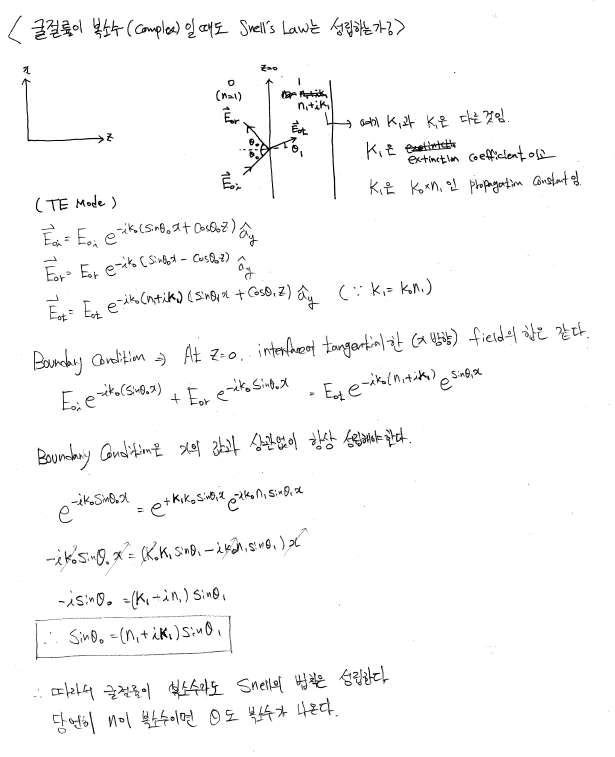 < 굴절률이 복소수(Complex)일 때도 Snell's Law는 성립하는가? >
x
z
z=0
0
(n=1)
1
n₁+iK₁
E⃗or
E⃗ot
θ₀
θ₀
θ₁
E⃗oi
→ 여기 K₁과 k₁은 다른것임.
K₁은 extinction coefficient 이고
k₁은 k₀×n₁인 propagation constant임.
(TE Mode)
E⃗oi = Eoi e^{-ik₀(sinθ₀x + cosθ₀z)} ây
E⃗or = Eor e^{-ik₀(sinθ₀x - cosθ₀z)} ây
E⃗ot = Eot e^{-ik₀(n₁+iK₁)(sinθ₁x + cosθ₁z)} ây (∵ k₁ = k₀n₁)
Boundary Condition ⇒ At z=0, interface에 tangential한 (x방향) field의 합은 같다.
Eoi e^{-ik₀(sinθ₀x)} + Eor e^{-ik₀sinθ₀x} = Eot e^{-ik₀(n₁+iK₁)} e^{sinθ₁x}
Boundary Condition은 x의 값과 상관없이 항상 성립해야한다.
e^{-ik₀sinθ₀x} = e^{+K₁k₀sinθ₁x} e^{-ik₀n₁sinθ₁x}
-ik₀sinθ₀x = (k₀K₁sinθ₁ - ik₀n₁sinθ₁)x
-isinθ₀ = (K₁ - in₁)sinθ₁
∴ sinθ₀ = (n₁+iK₁)sinθ₁
∴ 따라서 굴절률이 복소수라도 Snell의 법칙은 성립한다
당연히 n이 복소수이면 θ도 복소수가 나온다.